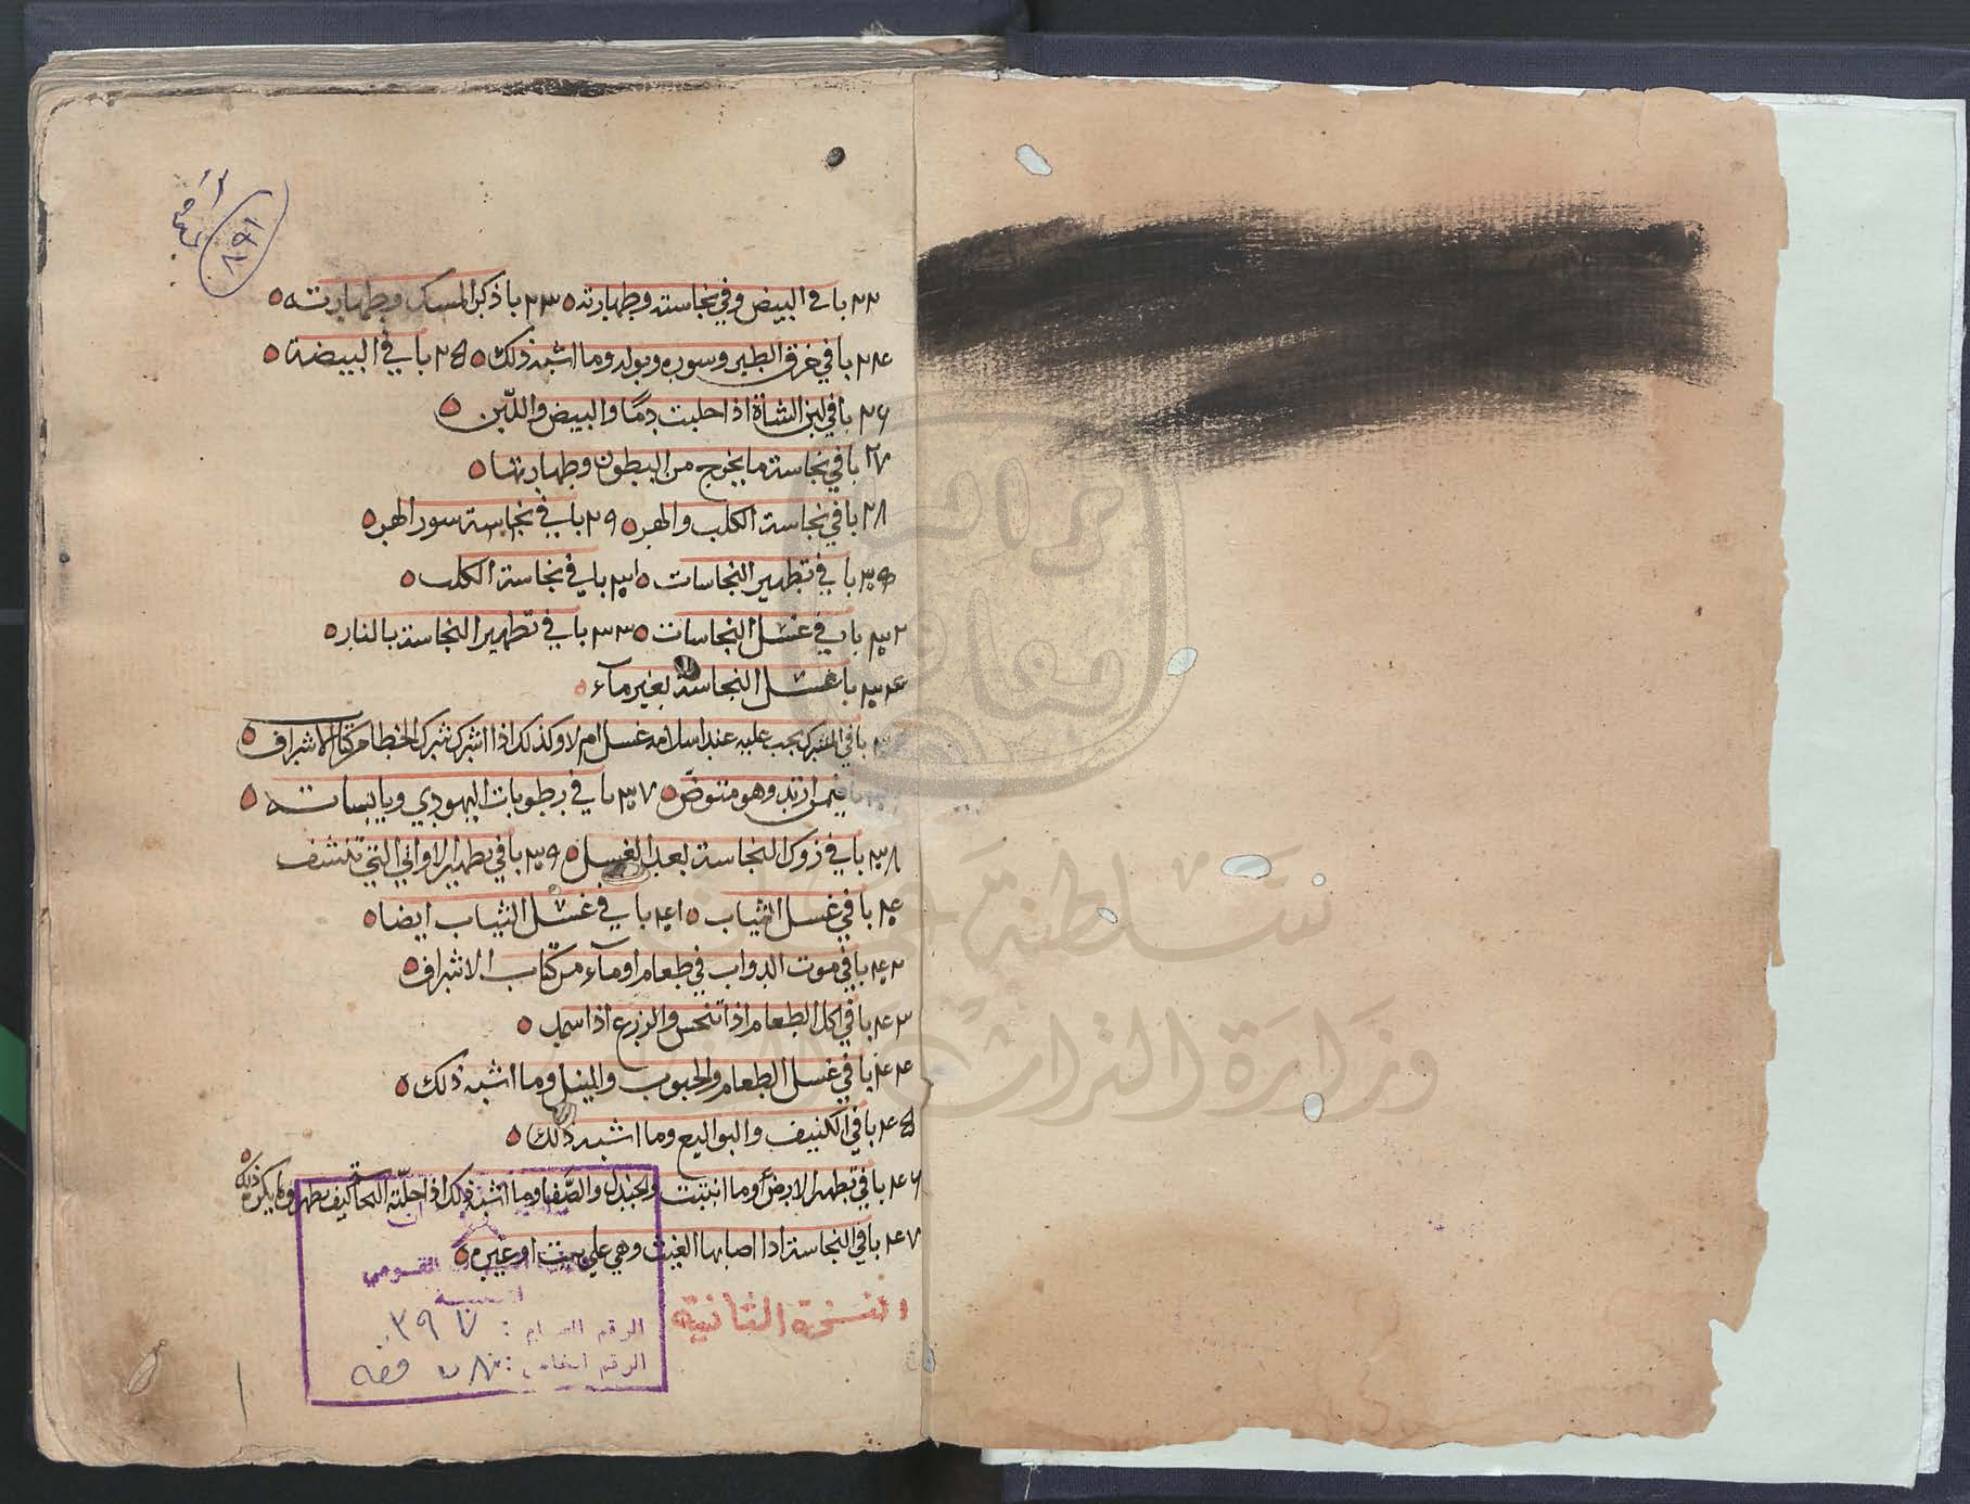 ٨٩١
٢٢ با في البيض وفي نجاسته وطهارته ٥ ٢٣ با ذكر المسك وطهارته ٥
٢٤ با في خرق الطير وسوره وبوله وما اشبه ذلك ٥ ٢٥ باب في البيضة ٥
٢٦ با في لبن الشاة اذا حلبت دمًا والبيض واللّبن ٥
٢٧ با في نجاسة ما يخرج من البطون وطهارتها ٥
٢٨ با في نجاسة الكلب والهر ٥ ٢٩ باب في نجاسة سور الهر ٥
٣٠ باب في تطهير النجاسات ٥ ٣١ باب في نجاسة الكلب ٥
٣٢ باب في غسل النجاسات ٥ ٣٣ باب في تطهير النجاسة بالنار ٥
٣٤ با غسل النجاسة بغير مآء ٥
با في المشرك يجب عليه عند اسلامه غسل ام لا وكذلك اذا اشرك شرك الخطا من كتاب الاشراف ٥
با فيمن ارتد وهو متوضّ ٥ ٣٧ باب في رطوبات اليهودي ويابساته ٥
٣٨ باب في زوك النجاسة بعد الغسل ٥ ٣٩ با في تطهير الاواني التي تنشف
٤٠ با في غسل الثياب ٥ ٤١ باب في غسل الثياب ايضا ٥
٤٢ با في موت الدواب في طعام او مآء من كتاب الاشراف ٥
٤٣ با في اكل الطعام اذا تنجس والزرع اذا سمل ٥
٤٤ با في غسل الطعام والحبوب والنيل وما اشبه ذلك ٥
٤٥ با في الكنيف والبواليع وما اشبه ذلك ٥
٤٦ با في تطهير الارض وما انبتت والجندل والصّفا وما اشبه ذلك اذا حلّته النجاسة كيف يطهر وما يكون ذلك ٥
٤٧ با في النجاسة اذا اصابها الغيث وهي على بيت او غيره ٥
النسخة الثانية
القومي
الرقم العام : ٣٩٧
الرقم الخاص : فقه
سلطنة عمان
وزارة التراث